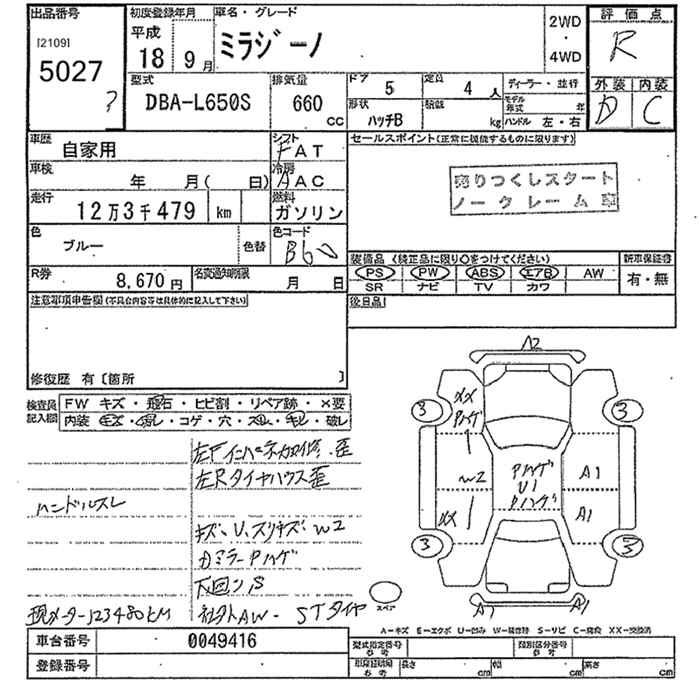 出品番号 初度登録年月 車名・グレード 評価点
[2109]
5027 ?
平成
18 9月
ミラジーノ
2WD
・
4WD
R
外装 内装
D C
型式 排気量 ドア 5 定員 4人 ディーラー・並行
DBA-L650S 660 cc
形状 ハッチB 積載 kg
モデル年式 年
ハンドル 左・右
車歴 自家用
シフト FAT
車検 年 月( 日)
冷房 AAC
走行 12万3千479 km
燃料 ガソリン
色 ブルー 色替
色コード B60
R券 8,670円 名変通知期限 月 日
セールスポイント(正常に機能するものに限ります)
売りつくしスタート
ノークレーム車
装備品(純正品に限り○をつけてください) 新車保証書
PS PW ABS エアB AW 有・無
SR ナビ TV カワ
後日品
注意事項申告欄(不具合内容等は具体的に記入して下さい)
修復歴 有〔箇所 〕
検査員記入欄
FW キズ・飛石・ヒビ割・リペア跡・×要
内装 ・コゲ・穴・スレ・キレ・破レ
歪
左Rタイヤハウス歪
ハンドルスレ
キズ、U、スリキズ、W2
ミラーPハゲ
下回りS
現メーター123480KM
社外AW・STタイヤ
A2
XX
Pハゲ
3 3
W2
Pハゲ
U1
Pハゲ
A1
XX
A1
3 3
スペア
A1
A-キズ E-エクボ U-凹み W-補修跡 S-サビ C-腐食 XX-交換済
車台番号 0049416
登録番号
型式指定番号 参考 類別区分番号 参考
長さ cm 幅 cm 高さ cm